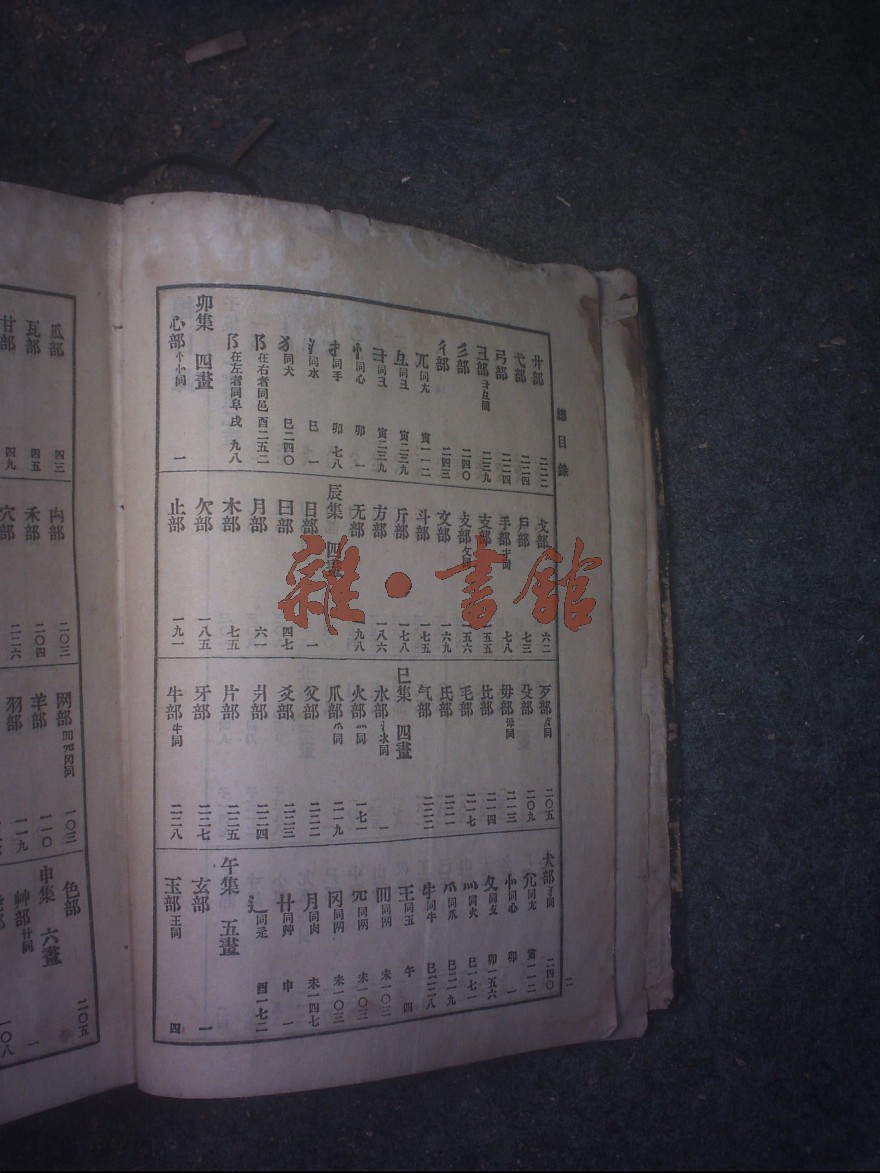 總目錄
廾部 二二二
弋部 二二四
弓部 二二四
彐部 彑彐同 二三九
彡部 二四〇
彳部 二四三
兀同尢 寅一一二
彑同彐 寅二三九
彐同彐 寅二三九
忄同心 卯一
扌同手 卯七八
氵同水 巳一
犭同犬 巳二四〇
阝在右者同邑 酉二五二
阝在左者同阜 戌九八
卯集 四畫
心部 忄㣺同 一
戈部 六二
戶部 七三
手部 扌同 七八
支部 一五五
攴部 攵同 一五六
文部 一六九
斗部 一七五
斤部 一七八
方部 一八六
无部 一九八
辰集 四畫
日部 一
曰部 四七
月部 六一
木部 七五
欠部 一八五
止部 一九一
歹部 歺同 二〇五
殳部 二〇九
毋部 母同 二一三
比部 二一四
毛部 二一七
氏部 二二一
气部 二二二
巳集 四畫
水部 氵氺同 一
火部 灬同 一七一
爪部 爫同 二一九
父部 二二二
爻部 二二三
爿部 二二四
片部 二二五
牙部 二二七
牛部 牜同 二二八
犬部 犭同 二四〇
尣同尢 寅一一二
㣺同心 卯一
攵同攴 卯一五六
灬同火 巳一七一
爫同爪 巳二一九
牜同牛 巳二二八
王同玉 午四
罒同网 未一〇三
冗同网 未一〇三
冈同网 未一〇三
月同肉 未一四七
廾同艸 申一
辶同辵 酉一七二
午集 五畫
玄部 一
玉部 王同 四
二
瓜部 四三
瓦部 四五
甘部 四九
禸部 二〇三
禾部 二〇四
穴部 二二六
网部 一〇三
羊部 一一〇
羽部 一一九
色部 二〇五
申集 六畫
艸部 廾同 一
一〇八
雜·書館